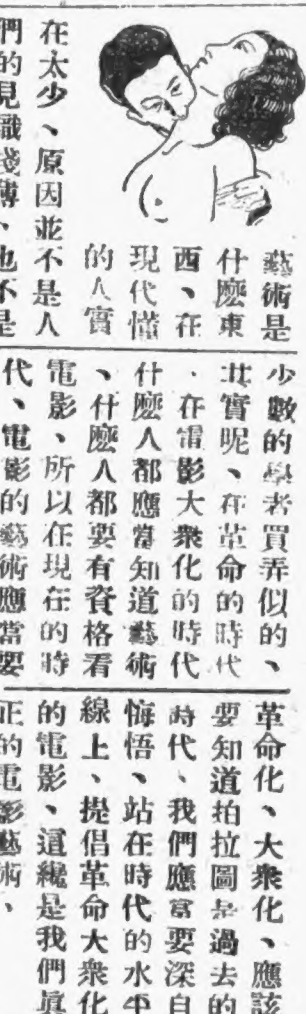 藝術是
什麽東
西、在
現代懂
的人實
在太少、原因並不是人
們的見識淺薄、也不是
少數的學者買弄似的、
其實呢、在革命的時代
．在電影大衆化的時代
什麽人都應當知道藝術
、什麽人都要有資格看
電影、所以在現在的時
代、電影的藝術應當要
革命化、大衆化、應該
要知道拍拉圖是過去的
時代、我們應當要深自
悔悟、站在時代的水平
線上、提倡革命大衆化
的電影、這纔是我們眞
正的電影藝術、